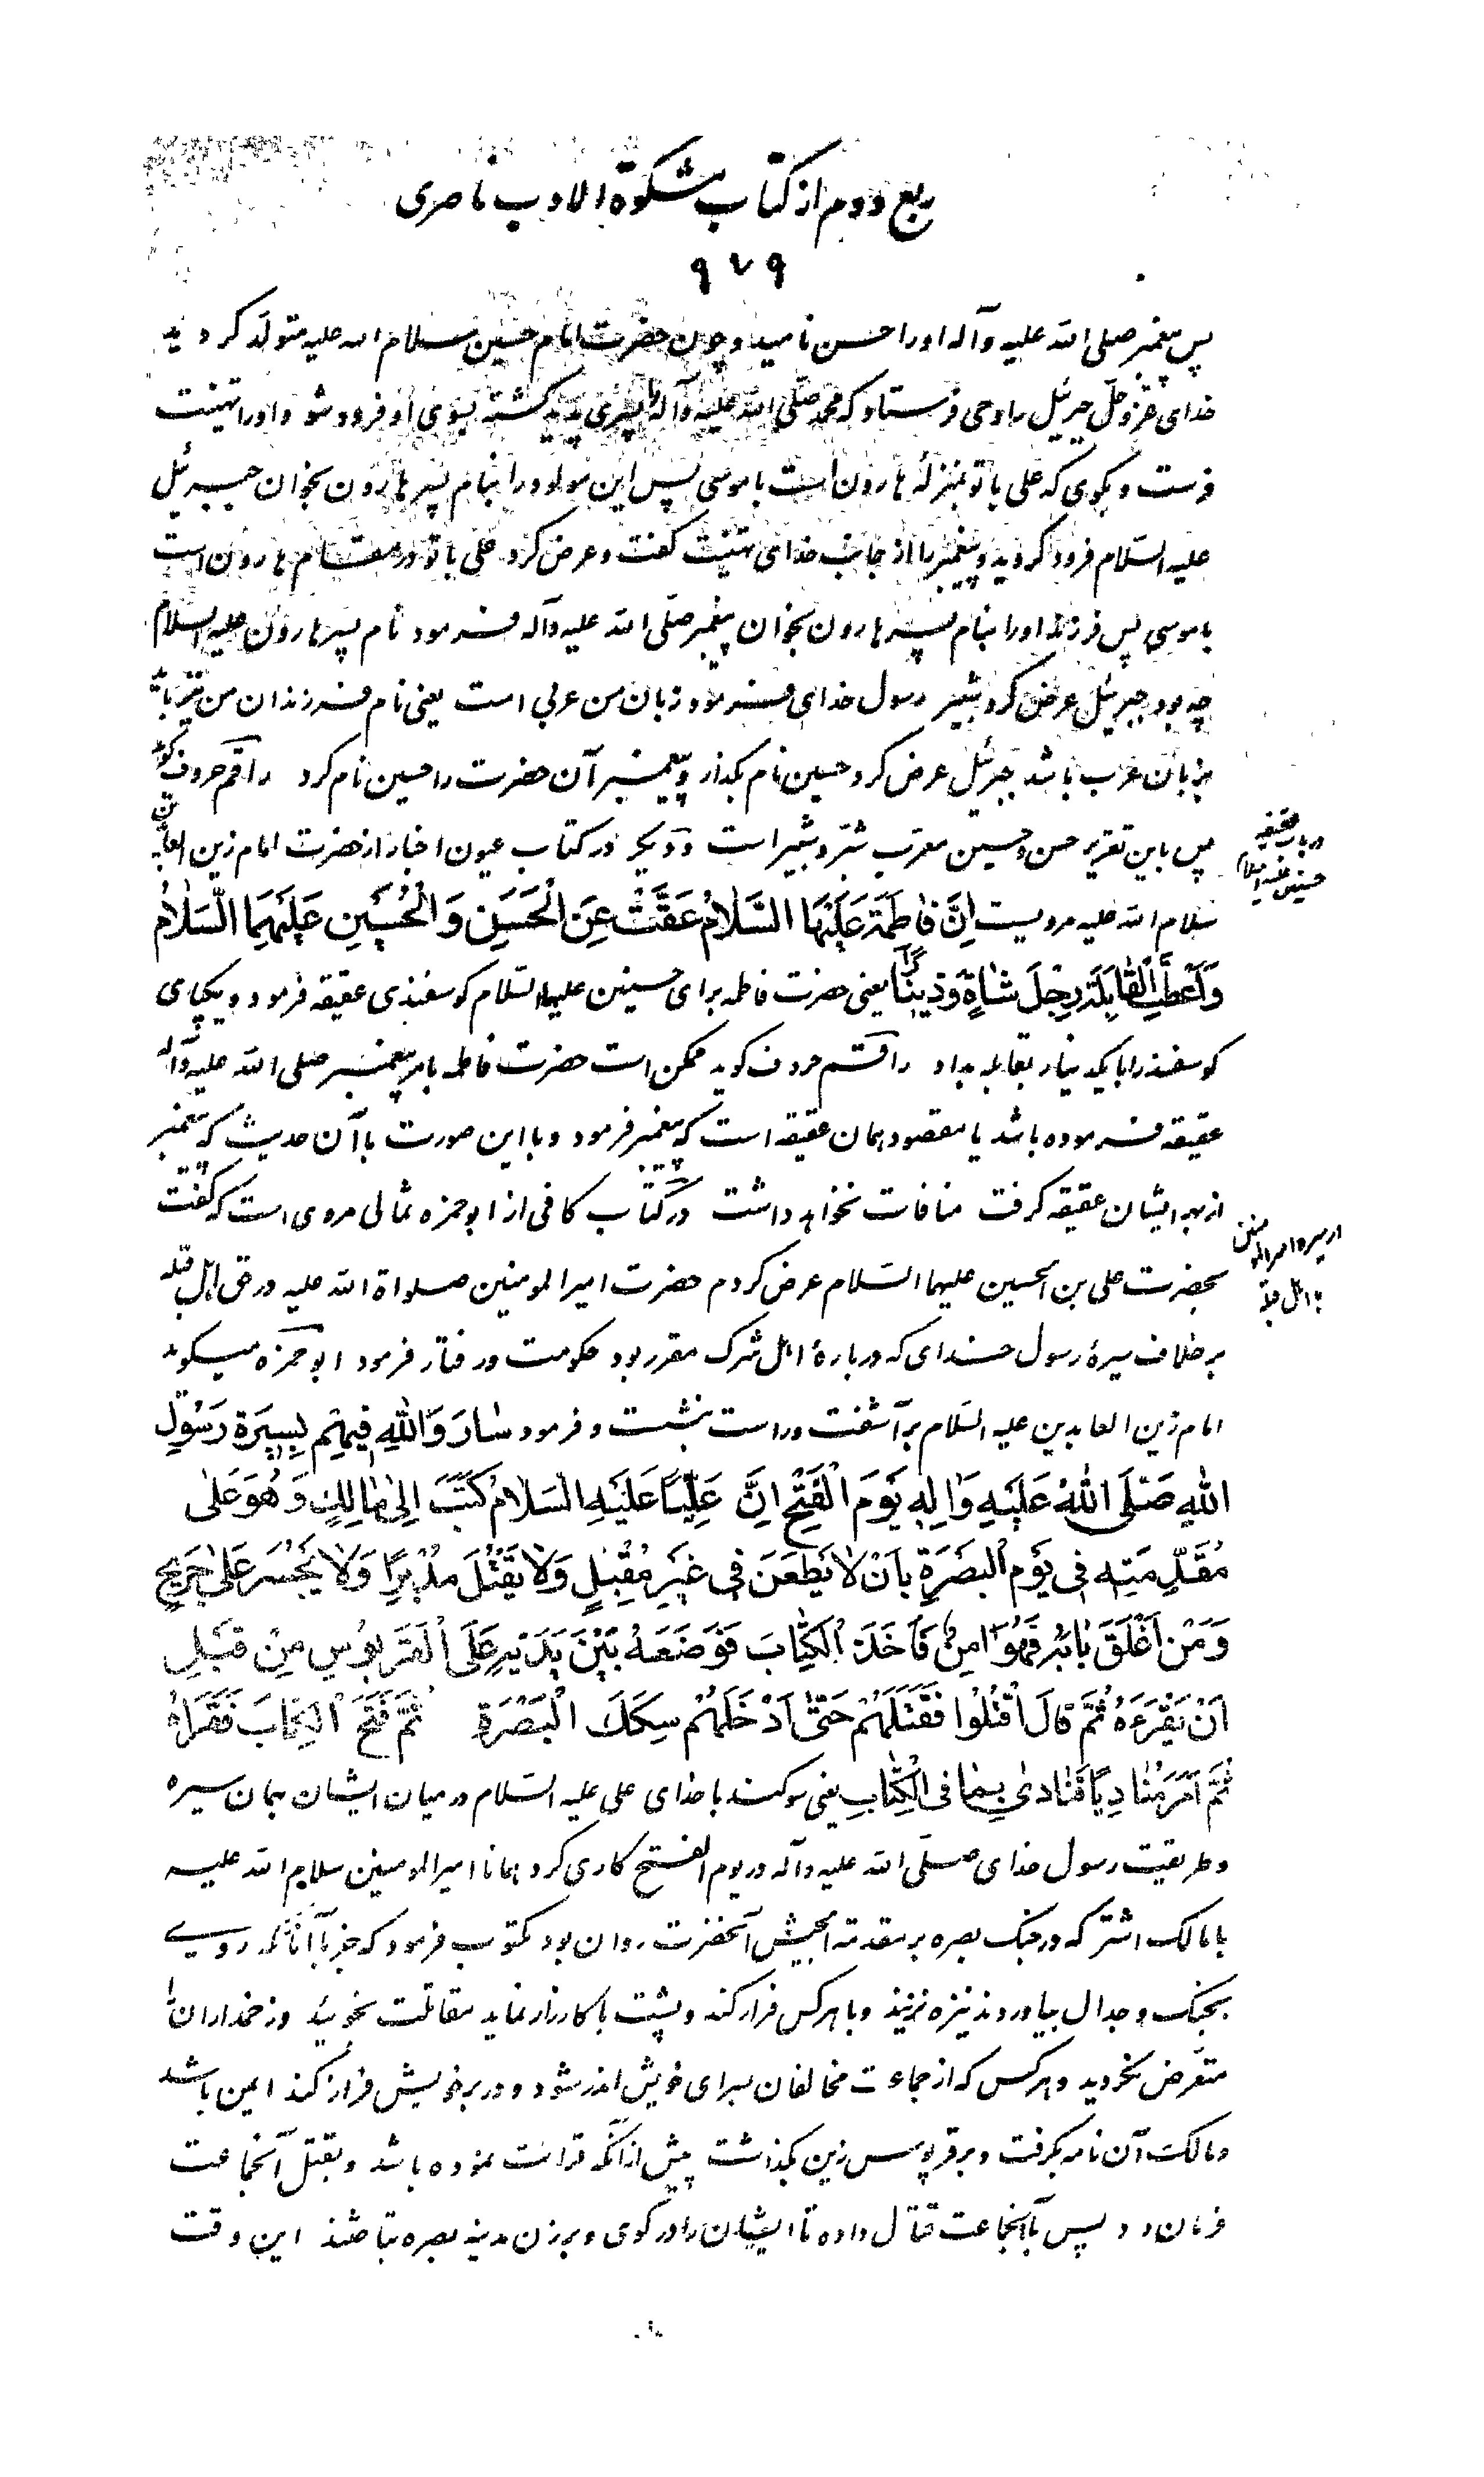 ربع دوم از کتاب مشکوة الادب ناصری
۹۷۹
پس پیغمبر صلی الله علیه وآله او را حسن نامید و چون حضرت امام حسین سلام الله علیه متولد کردید
خدای عزوجل جبرئیل را وحی فرستاد که محمد صلی الله علیه وآله را پسری پدید کشته بسوی او فرود شو و او را تهنیت
فرست و بکوی که علی با تو بمنزلهٔ هارون است با موسی پس این مولود را بنام پسر هارون بخوان جبرئیل
علیه السلام فرود کردید و پیغمبر را از جانب خدای تهنیت کفت و عرض کرد علی با تو در مقام هارون است
با موسی پس فرزند او را بنام پسر هارون بخوان پیغمبر صلی الله علیه وآله فرمود نام پسر هارون علیه السلام
چه بود جبرئیل عرض کرد شبیر رسول خدای فرمود زبان من عربی است یعنی نام فرزندان من نیز باید
بزبان عرب باشد جبرئیل عرض کرد حسین نام بکذار و پیغمبر آن حضرت را حسین نام کرد راقم حروف کوید
پس باین تقریر حسن و حسین معرب شبر و شبیر است و دیکر در کتاب عیون اخبار از حضرت امام زین العابدین
در باب عقیقه
حسنین علیهما السلام
سلام الله علیه مرویست اِنَّ فاطِمَةَ عَلَیْهَا السَّلامُ عَقَّتْ عَنِ الْحَسَنِ وَ الْحُسَیْنِ عَلَیْهِمَا السَّلامُ
وَاَعْطَتِ الْقابِلَةَ رِجْلَ شاةٍ وَدینارًا یعنی حضرت فاطمه برای حسنین علیهما السلام کوسفندی عقیقه فرمود و یکپای
کوسفند را با یکدینار بقابله بداد راقم حروف کوید ممکن است حضرت فاطمه بامر پیغمبر صلی الله علیه وآله
عقیقه فرموده باشد یا مقصود همان عقیقه است که پیغمبر فرمود و با این صورت با آن حدیث که پیغمبر
از بهر ایشان عقیقه کرفت منافات نخواهد داشت در کتاب کافی از ابو حمزه ثمالی مروی است که کفت
از سیره امیرالمومنین
با اهل قبله
بحضرت علی بن الحسین علیهما السلام عرض کردم حضرت امیر المومنین صلواة الله علیه در حق اهل قبله
بر خلاف سیرهٔ رسول خدای که در بارهٔ اهل شرک مقرر بود حکومت و رفتار فرمود ابو حمزه میکوید
امام زین العابدین علیه السلام بر آشفت و راست بنشست و فرمود سارَ وَاللهِ فیهِمْ بِسیرَةِ رَسُولِ
اللهِ صَلَّی اللهُ عَلَیْهِ وَالِهِ یَوْمَ الْفَتْحِ اِنَّ عَلِیًّا عَلَیْهِ السَّلامُ کَتَبَ اِلیٰ مالِكٍ وَهُوَ عَلیٰ
مُقَدِّمَتِهِ فی یَوْمِ الْبَصْرَةِ بِاَنْ لا یَطْعَنَ فی غَیْرِ مُقْبِلٍ وَلا یَقْتُلَ مُدْبِرًا وَلا یُجْهِزَ عَلیٰ جَریحٍ
وَمَنْ اَغْلَقَ بابَهُ فَهُوَ امِنٌ فَاَخَذَ الْکِتابَ فَوَضَعَهُ بَیْنَ یَدَیْهِ عَلَی الْقَرَبُوسِ مِنْ قَبْلِ
اَنْ یَقْرَءَهُ ثُمَّ قالَ اقْتُلُوا فَقَتَلَهُمْ حَتّیٰ اَدْخَلَهُمْ سِکَكَ الْبَصْرَةِ ثُمَّ فَتَحَ الْکِتابَ فَقَرَاَهُ
ثُمَّ اَمَرَ مُنادِیًا فَنادیٰ بِما فِی الْکِتابِ یعنی سوکند با خدای علی علیه السلام در میان ایشان بهمان سیره
و طریقیت رسول خدای صلی الله علیه وآله در یوم الفتح کاری کرد همانا امیر المومنین سلام الله علیه
با مالک اشتر که در جنک بصره بر مقدمة الجیش آنحضرت روان بود مکتوب فرمود که جز با آنانکه روی
بجنک و جدال بیاوردند نیزه نزنید و با هر کس فرار کند و پشت با کارزار نماید مقاتلت نجوئید و زخمداران را
متعرض نکردید و هر کس که از جماعت مخالفان بسرای خویش اندر شود و در بر خویش فراز کند ایمن باشد
و مالک آن نامه بکرفت و بر قربوس زین بکذاشت پیش از آنکه قرائت نموده باشد و بقتل آنجماعت
فرمان داد پس با آنجماعت قتال داده تا ایشان را در کوی و برزن مدینه بصره بتاختند این وقت